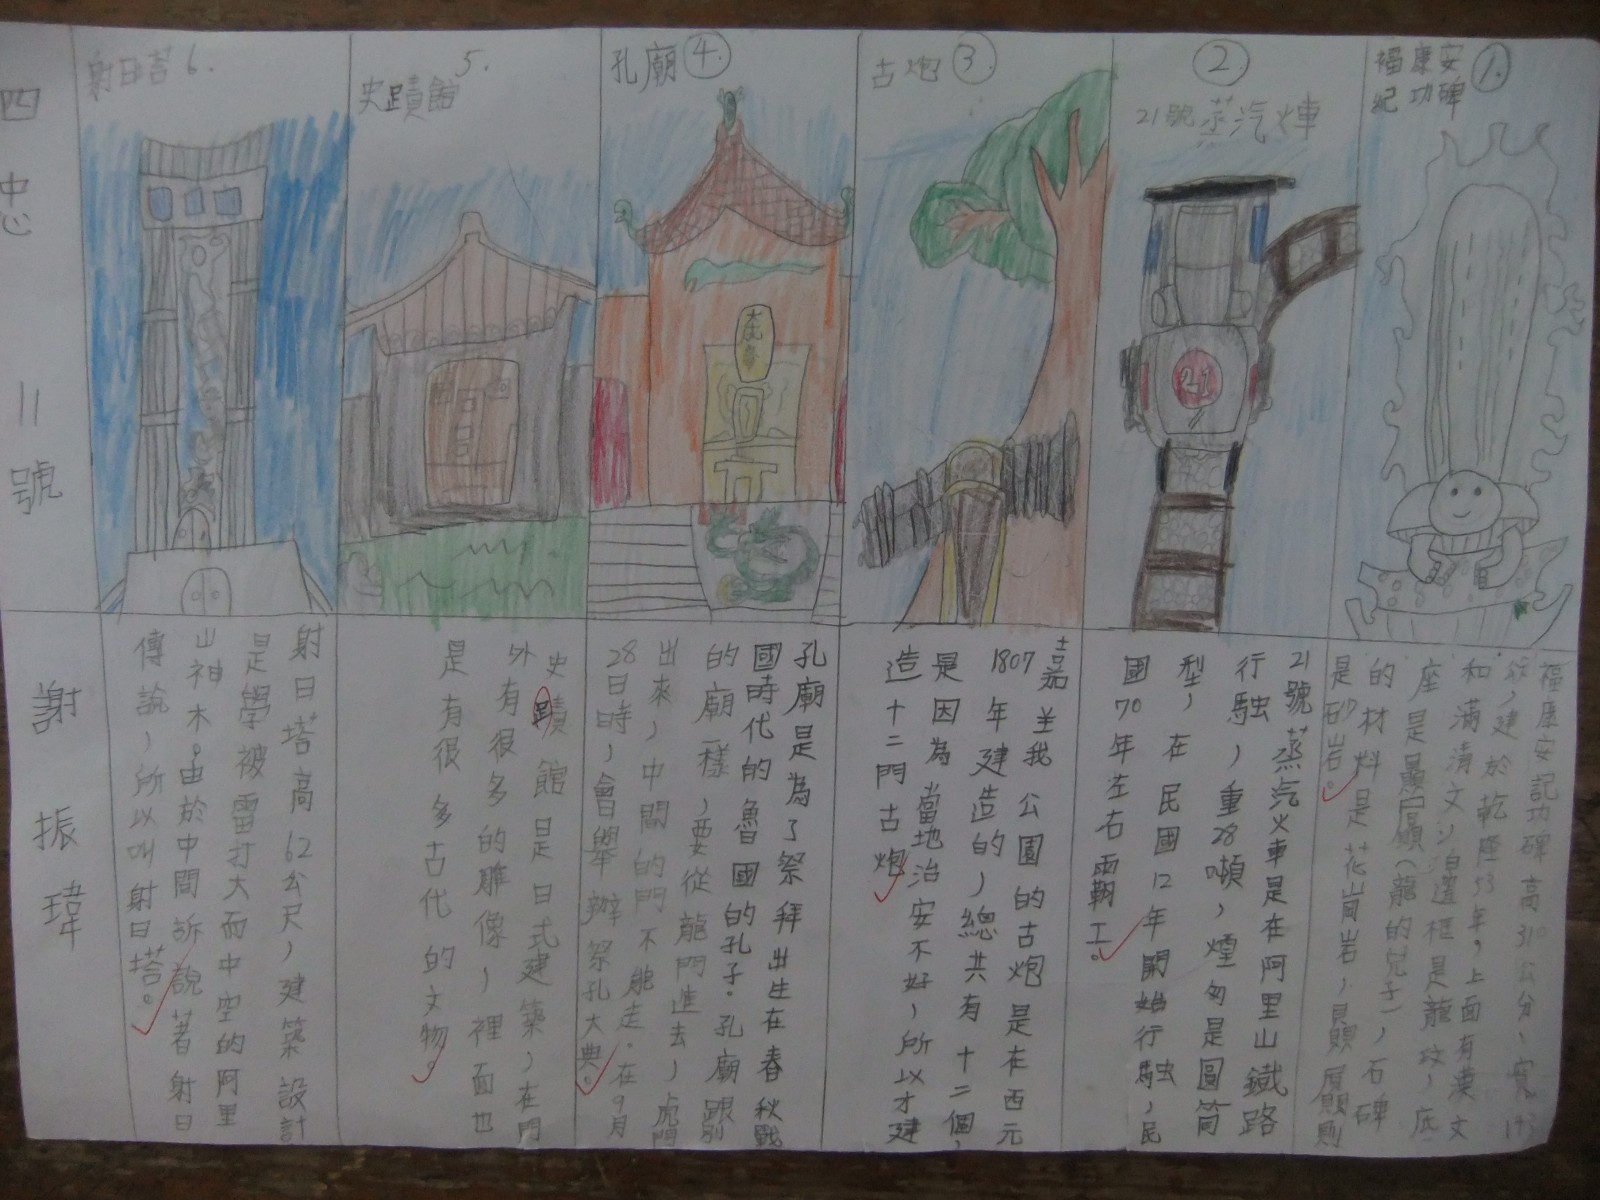 福康安
紀功碑
1.
福康安記功碑高310公分、寬
分,建於乾隆53年,上面有漢文
和滿清文,邊框是龍紋,底
座是贔屭(龍的兒子),石碑
的材料是花崗岩,贔屭則
是砂岩。
2
21號蒸汽車
21
21號蒸汽火車是在阿里山鐵路
行駛,重28噸,煙囪是圓筒
型,在民國12年開始行駛,民
國70年左右
工。
古炮
3.
嘉義公園的古炮是在西元
1807年建造的,總共有十二個,
是因為當地治安不好,所以才建
造十二門古炮
孔廟
4.
孔廟是為了祭拜出生在春秋戰
國時代的魯國的孔子。孔廟跟別
的廟一樣,要從龍門進去,虎門
出來,中間的門不能走。在9月
28日時,會舉辦祭孔大典。
5.
史蹟館
史蹟館是日式建築,在門
外有很多的雕像,裡面也
是有很多古代的文物。
射日塔
6.
射日塔高62公尺,建築設計
是學被雷打大而中空的阿里
山神木。由於中間訴說著射日
傳說,所以叫射日塔。
四忠
11號
謝振瑋